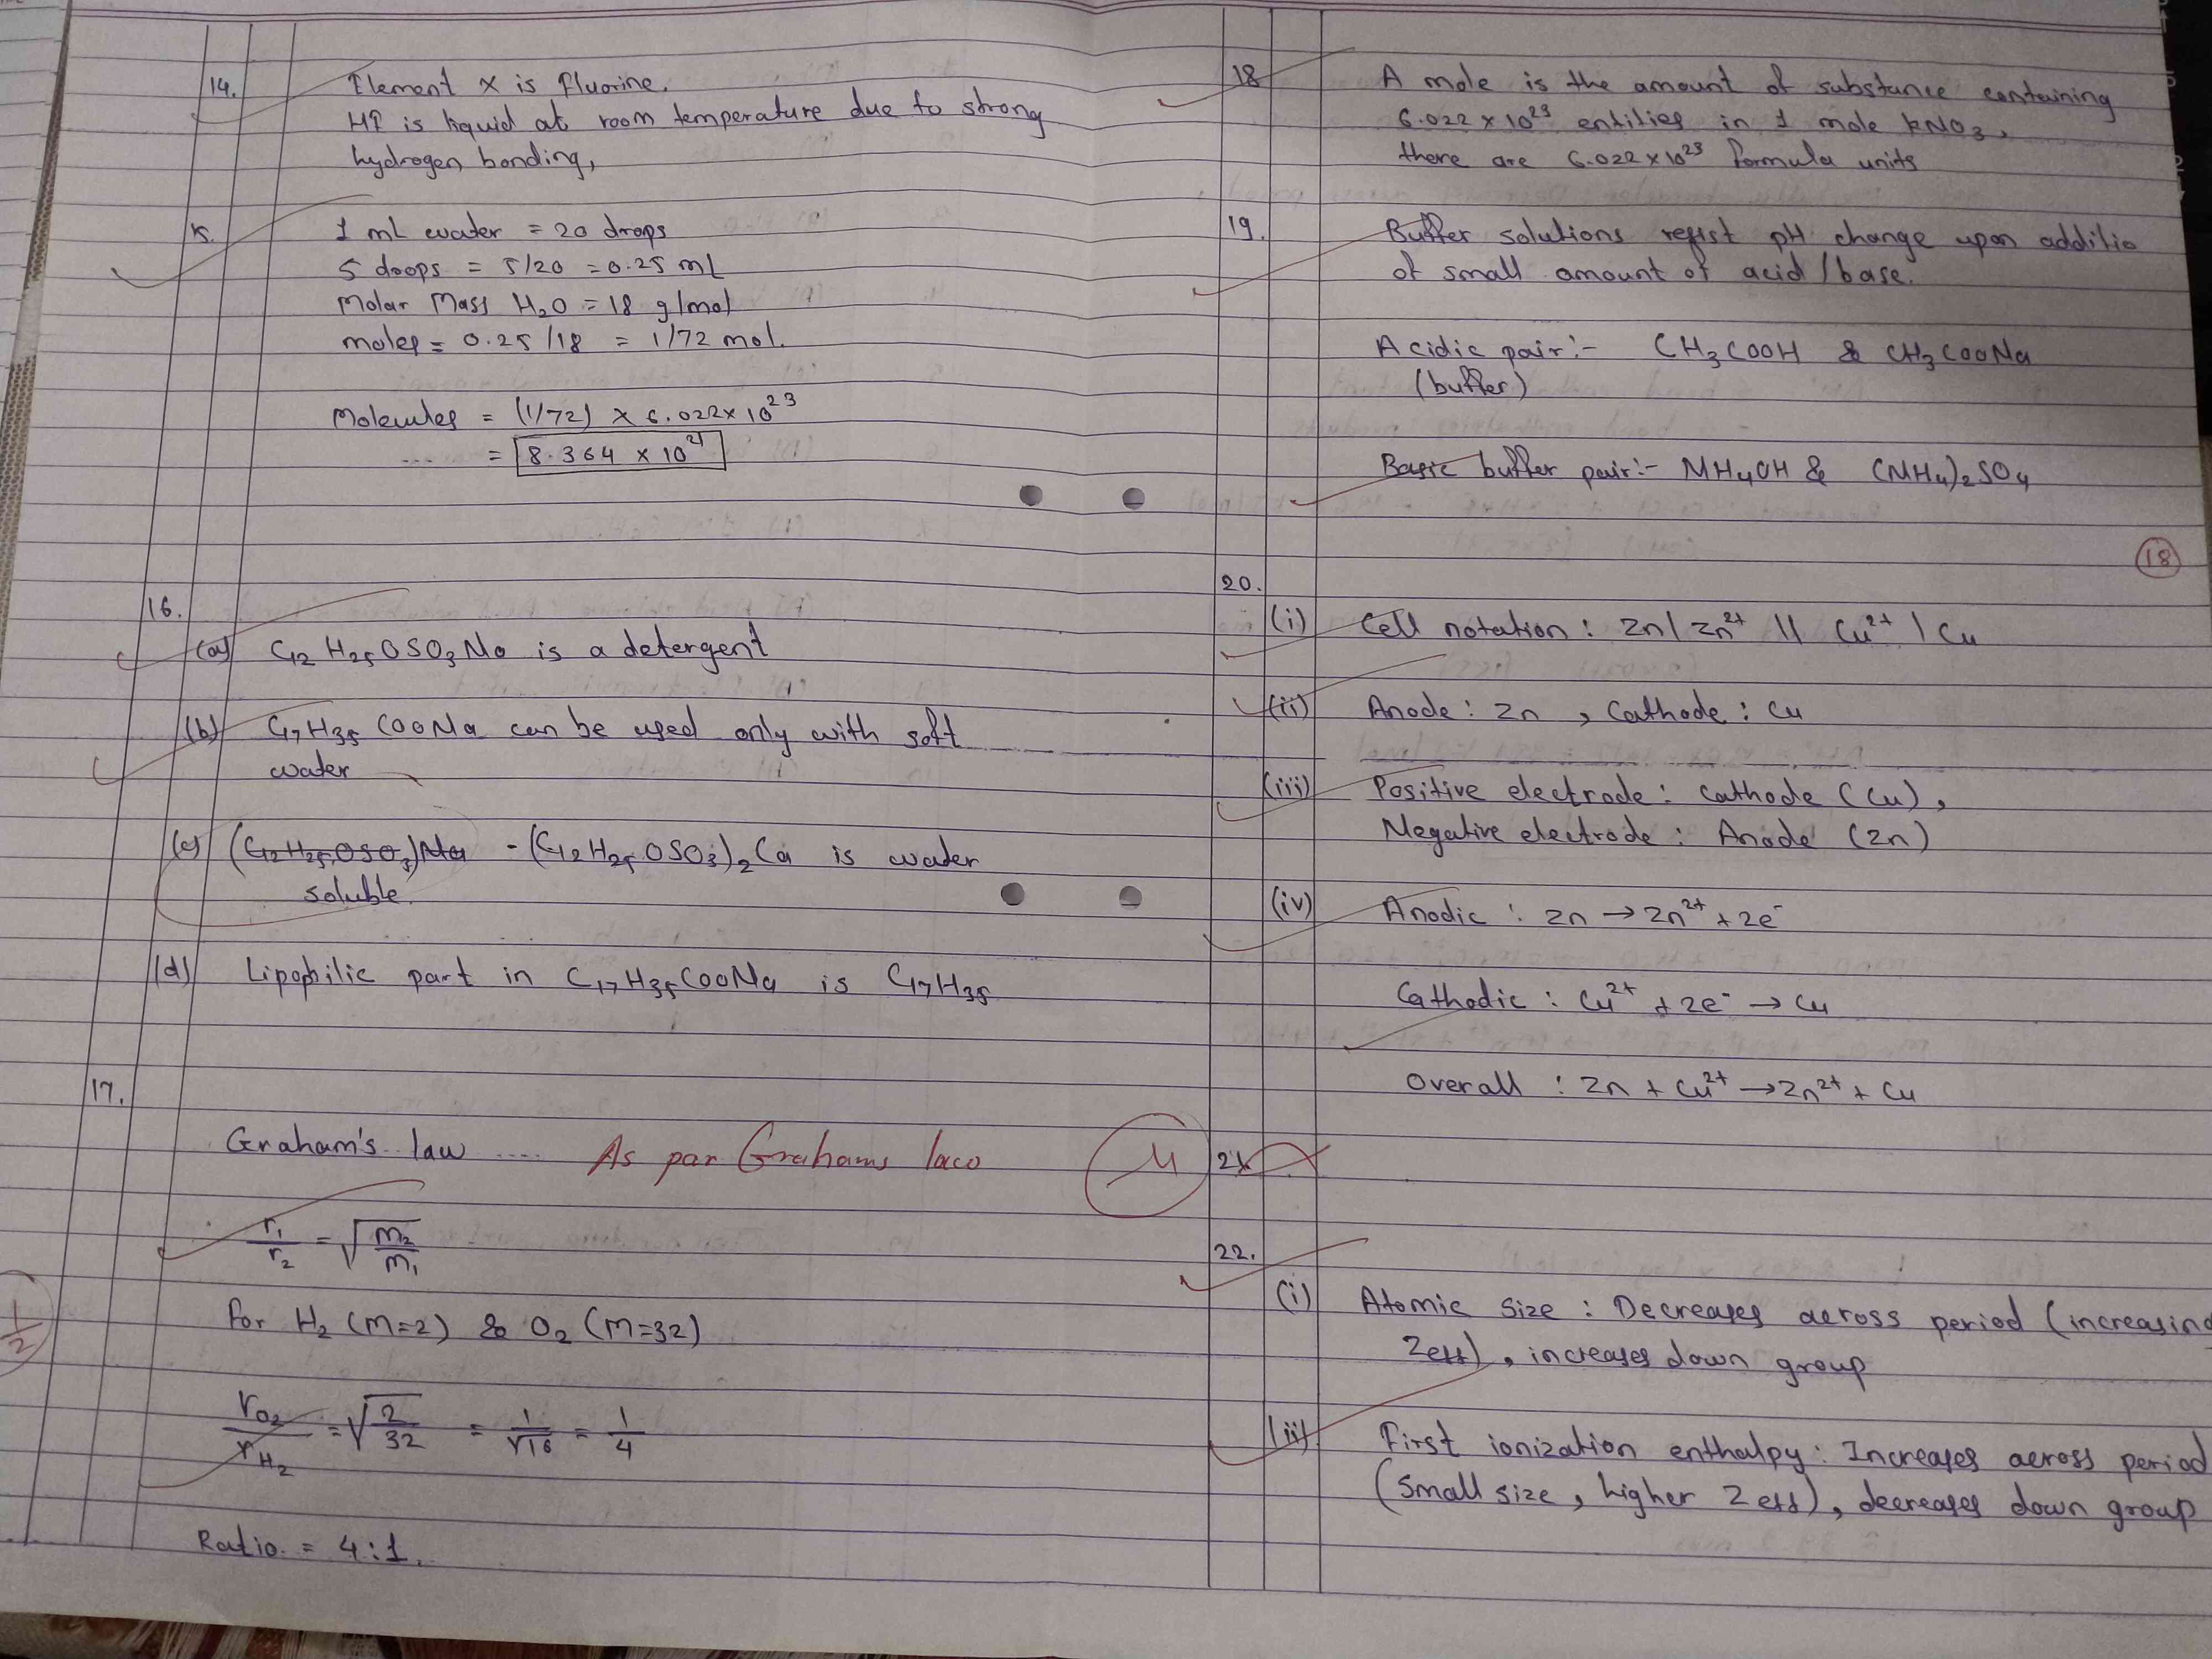 14. Element X is fluorine.
HF is liquid at room temperature due to strong
hydrogen bonding,
15. 1 mL water = 20 drops
5 drops = 5/20 = 0.25 mL
Molar Mass H₂O = 18 g/mol
moles = 0.25/18 = 1/72 mol.
Molecules = (1/72) × 6.022×10²³
.... = 8.364 × 10²¹
16.
(a) C₁₂H₂₅OSO₃Na is a detergent
(b) C₁₇H₃₅COONa can be used only with soft
water
(c) (C₁₂H₂₅OSO₃)Na - (C₁₂H₂₅OSO₃)₂Ca is water
soluble.
(d) Lipophilic part in C₁₇H₃₅COONa is C₁₇H₃₅
17.
Graham's law .... As par Grahams law
r₁/r₂ = √(m₂/m₁)
For H₂ (M=2) & O₂ (M=32)
1/2
rO₂/rH₂ = √(2/32) = 1/√16 = 1/4
Ratio = 4:1.
18 A mole is the amount of substance containing
6.022 × 10²³ entities in 1 mole KNO₃,
there are 6.022×10²³ formula units
19. Buffer solutions resist pH change upon additio
of small amount of acid/base.
Acidic pair:- CH₃COOH & CH₃COONa
(buffer)
Basic buffer pair:- NH₄OH & (NH₄)₂SO₄
18
20.
(i) Cell notation : Zn/Zn²⁺ || Cu²⁺ | Cu
(ii) Anode : Zn , Cathode : Cu
(iii) Positive electrode : Cathode (Cu),
Negative electrode : Anode (Zn)
(iv) Anodic : Zn → Zn²⁺ + 2e⁻
Cathodic : Cu²⁺ + 2e⁻ → Cu
Overall : Zn + Cu²⁺ → Zn²⁺ + Cu
21
22.
(i) Atomic size : Decreases across period (increasing
Zeff), increases down group
(ii) First ionization enthalpy : Increases across period
(Small size, higher Zeff), decreases down group